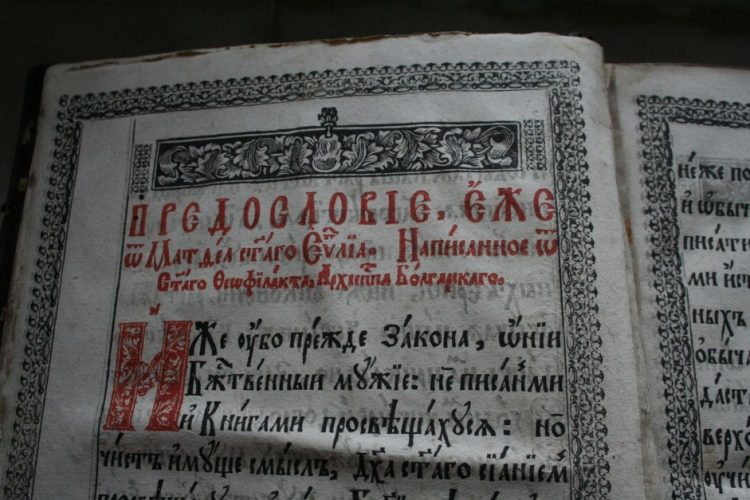 ПРЕДОСЛОВІЕ, ЕЖЕ
ѿ Матѳеа ст҃аго Єѵ҃лїа. Напиⷭ҇анное ѿ
Ст҃аго Ѳеофѵлакта, Архїеп҃па Болгарскаго.
Иже оубо прежде Закона, ѡнїи
Бж҃твенныи мужїе: не писаньми
и Книгами просвѣщахуся: но
чистъ имуще смыслъ, Дх҃а ст҃аго сїанїем
неже по
и обыч
писати
ми ист
ныхъ
обыча
дастъ
верхо
оучен